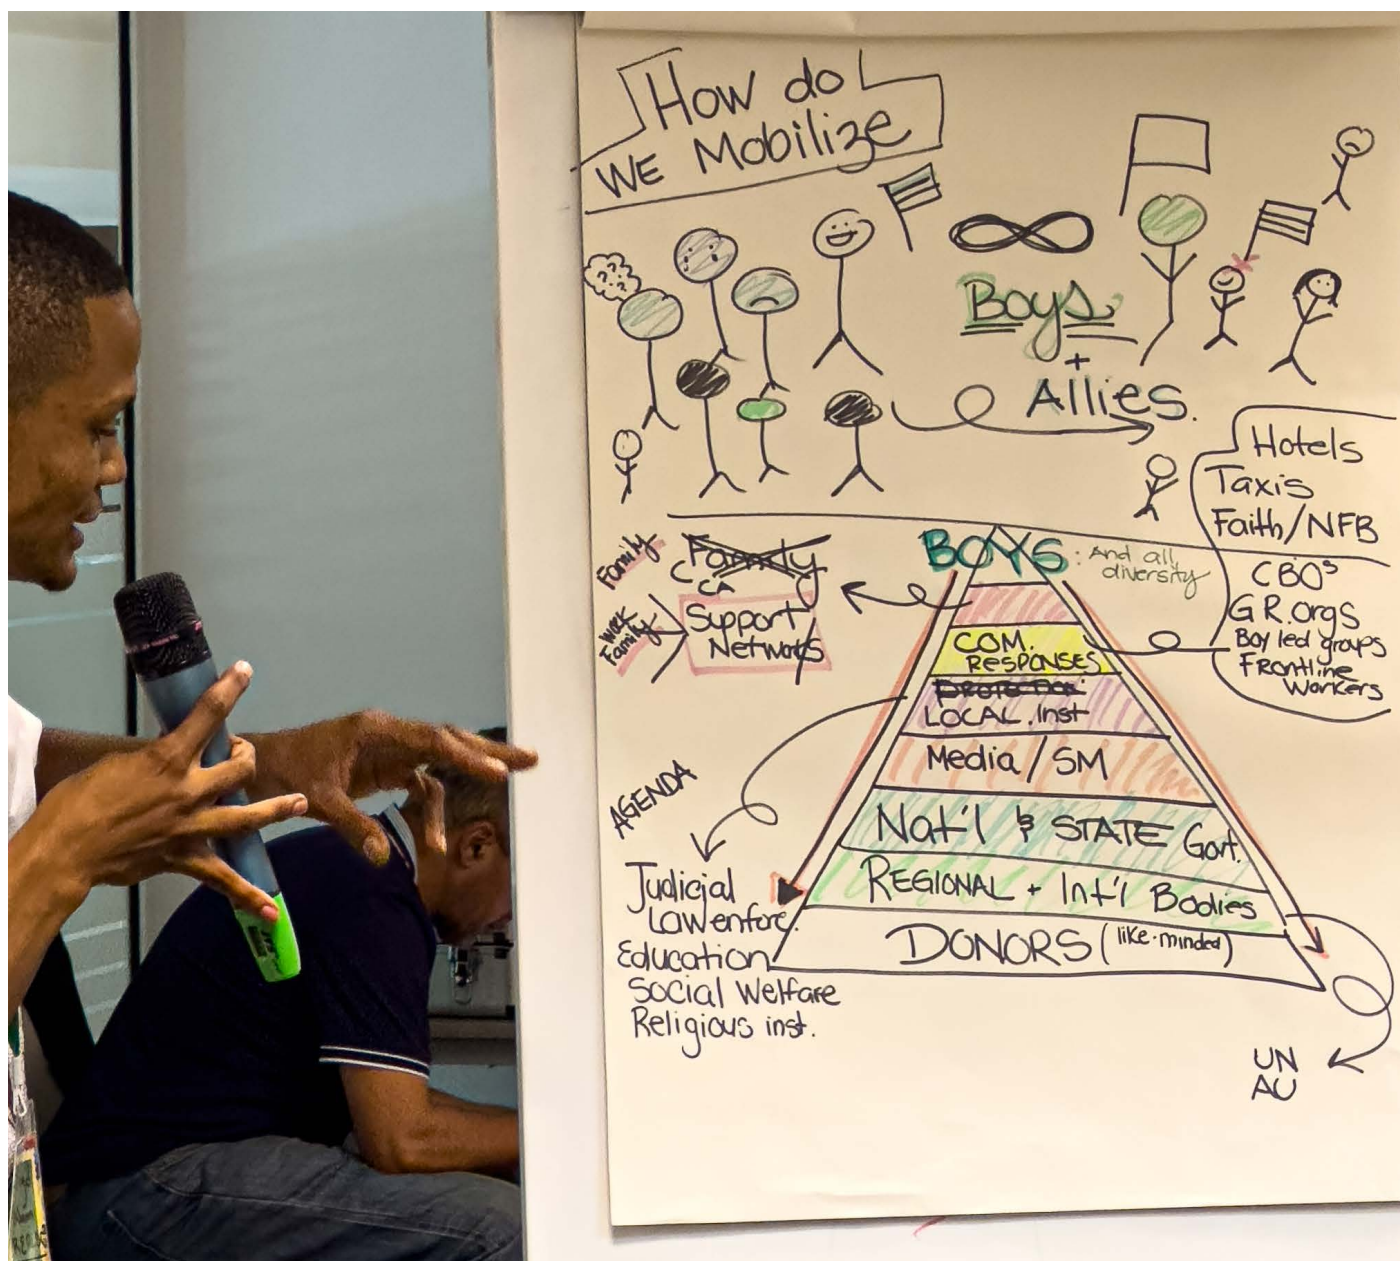 How do
WE Mobilize
Boys
+
Allies.
Hotels
Taxis
Faith/NFB
CBOs
G R.orgs
Boy led groups
Frontline
Workers
BOYS : And all
diversity
Family
Family
Support
Networks
Family
COM.
RESPONSES
LOCAL .Inst
Media / SM
Nat'l & STATE Govt.
REGIONAL + Int'l Bodies
DONORS (like-minded)
AGENDA
Judicial
Law enforc.
Education
Social Welfare
Religious inst.
UN
AU